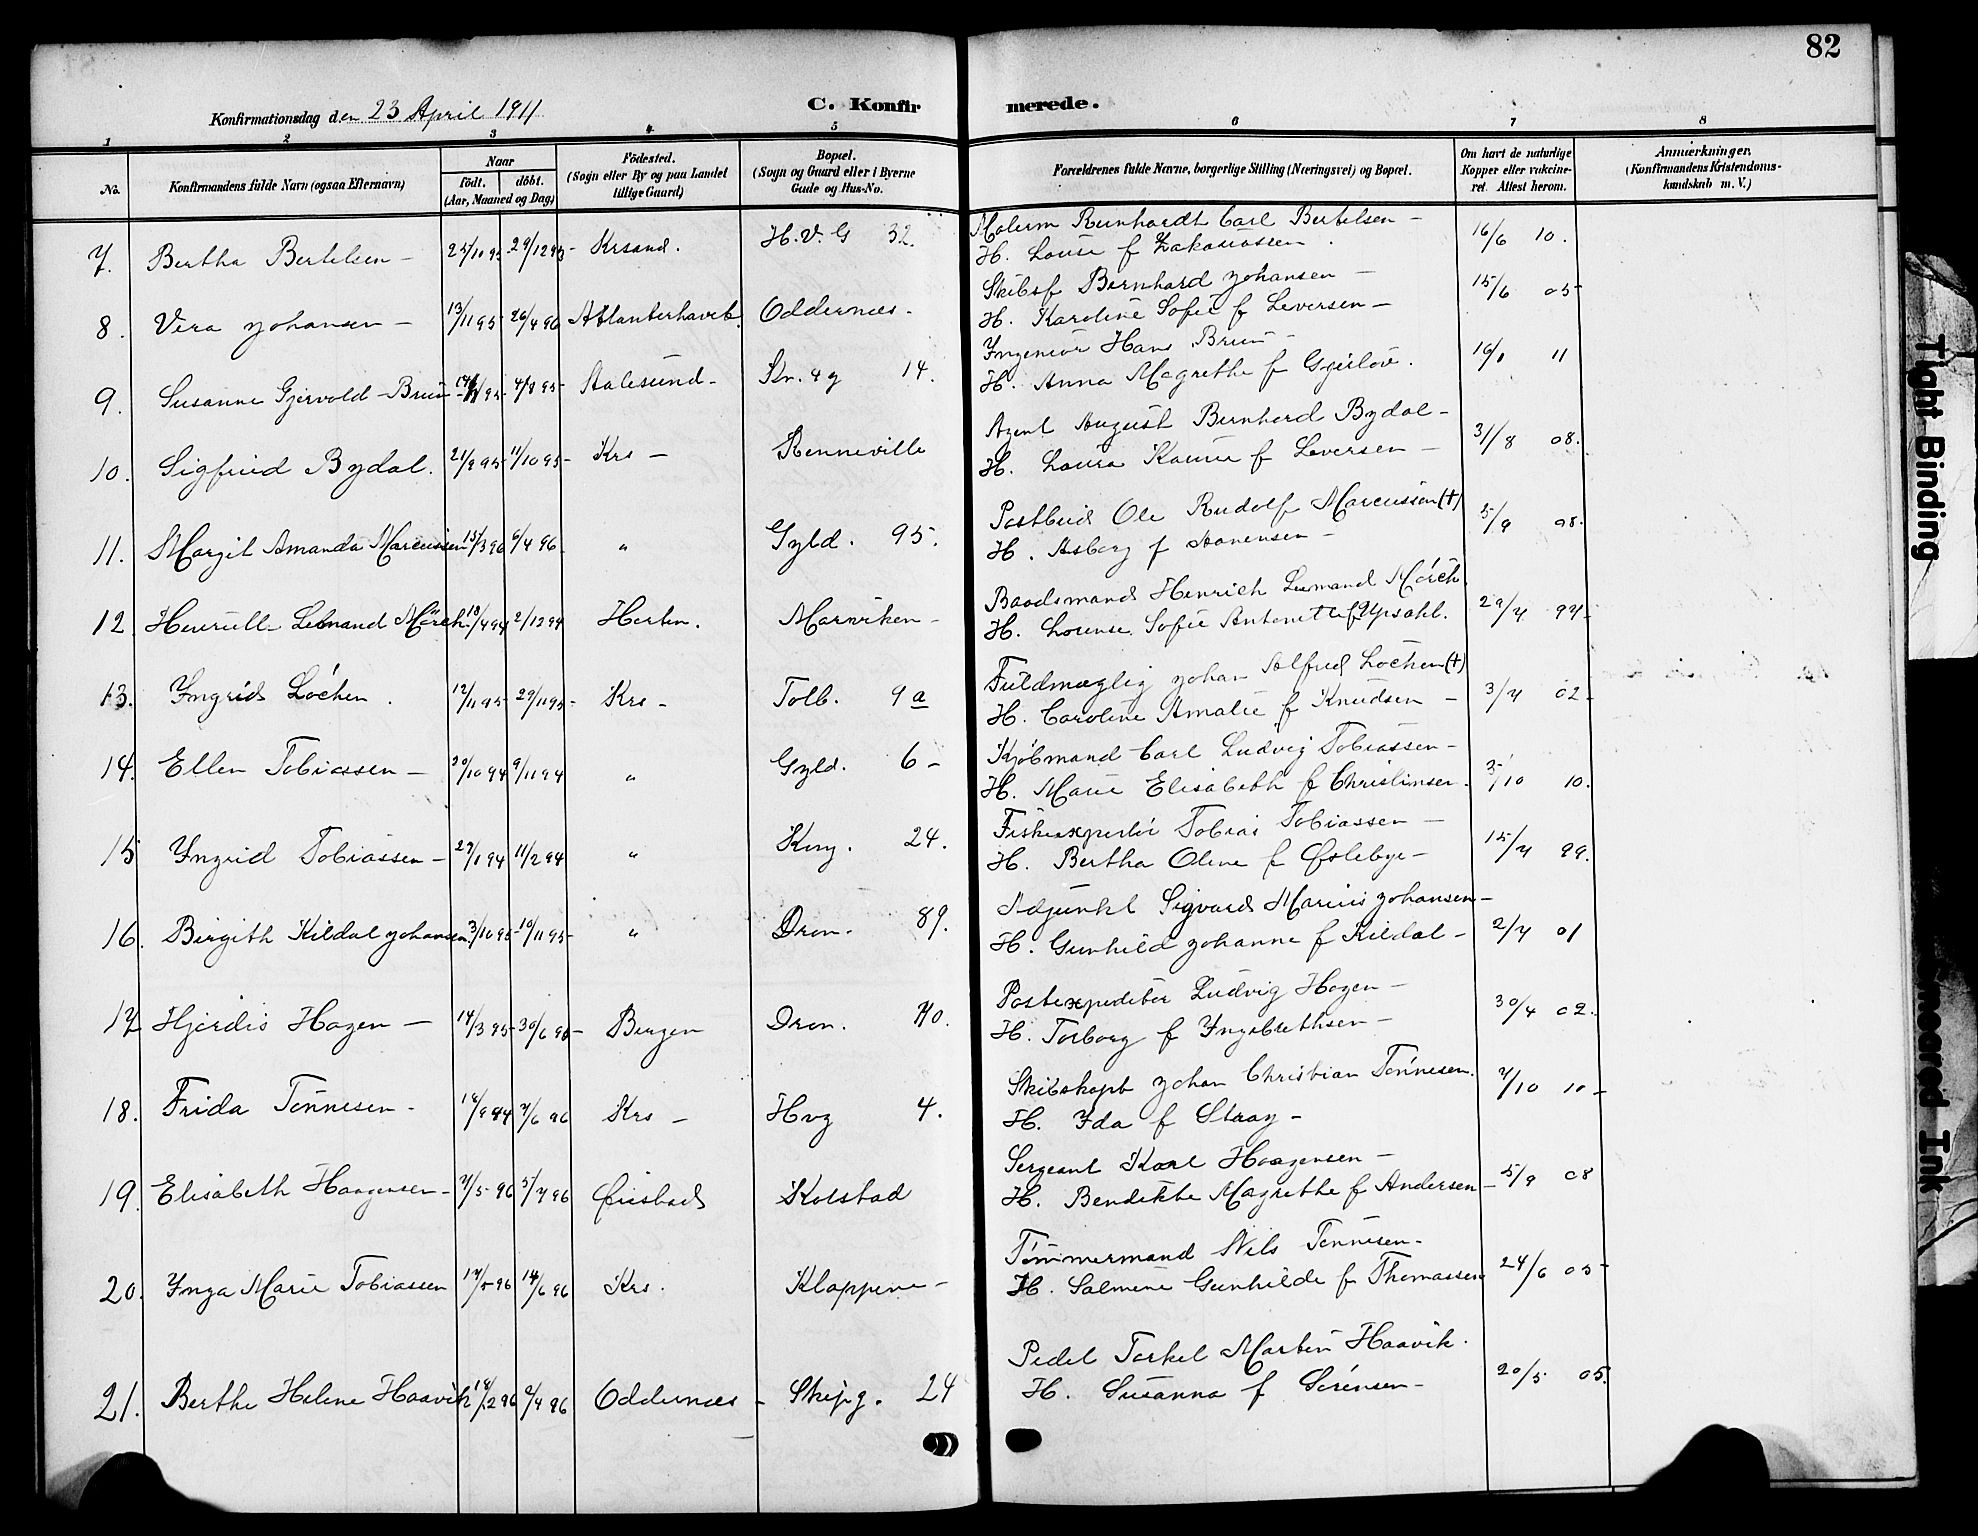 82
Konfirmationsdag den 23 April 1911
C. Konfir merede.
1 2 3 4 5 6 7 8
No.
Konfirmandens fulde Navn (ogsaa Efternavn)
Naar
födt. döbt.
(Aar, Maaned og Dag)
Födested.
(Sogn eller By og paa Landet
tillige Gaard)
Bopæl.
(Sogn og Gaard eller i Byerne
Gade og Hus-No.
Forældrenes fulde Navne, borgerlige Stilling (Næringsvei) og Bopæl.
Om havt de naturlige
Kopper eller vakcine-
ret. Attest herom.
Anmærkninger.
(Konfirmandens Kristendoms-
kundskab m. V.)
7. Bertha Bertelsen - 25/10 95 29/12 95 - Krsand. H.V.G 32. Reinhardt Carl Bertelsen -
H. Louise f Zakariassen. 16/6 10.
8. Vera Johansen - 13/11 95 - 26/4 96 Atlanterhavet Oddernæs. Skibsf Bernhard Johansen -
H. Karoline Sofie f Seversen - 15/6 05
9. Susanne Gjervold-Bruu 4/8 95 - Aalesund - Kr. 4 g 14. Ingeniør Hans Bruu -
H. Anna Magrethe f 16/1 11
10. Sigfried Bydal. 21/9 95 11/10 95 - Krs - Renneville Agent August Bernhard Bydal -
H. Laura f Seversen - 31/8 08.
11. Margit Amanda Marcussen 15/3 96 6/4 96. " Gyld. 95. Postbud Ole Rudolf Marcussen (+)
H. Asborg f Aanensen - 5/9 08.
12. Lemand Mörch. 18/4 94 2/12 94 Horten. Marviken - Baadsmand Henrich Lemand Mörch
H. Lorense Sofie Antonette f Opsahl. 29/7 97 -
13. Yngrid Löchen. 12/11 95 - 29/11 95 - Krs - Tolb. 9 a Fuldmægtig Johan Alfred Lochen (+)
H. Caroline Amalie f Knudsen - 3/7 02 -
14. Ellen Tobiassen - 20/10 94 9/11 94 " Gyld. 6 - Kjøbmand Carl Ludvig Tobiassen -
H. Marie Elisabeth f Christensen. 5/10 10.
15 Yngrid Tobiassen - 29/1 94 11/2 94 " Kong. 24. Fiskeexpertør Tobias Tobiassen -
H. Bertha Oline f Øslebye - 15/7 99.
16. Birgith Kildal Johansen 3/10 95 - 10/11 95 - " Dron. 89. Adjunkt Sigvard Marius Johansen -
H. Gunhild Johanne f Kildal - 2/7 01
17 Hjördis Hagen - 14/3 95 - 30/6 95 - Bergen Dron. 70. Postexpeditør Ludvig Hagen -
H. Torborg f Yngebrethsen - 30/4 02.
18. Frida Tönnesen - 7/6 96 Krs - Hvg 4. Skibskapt Johan Christian Tönnesen.
H. Ida f Stray - 7/10 10 -
19. Elisabeth Haagensen - 7/5 96 5/7 96 Øiestad Kolstad Sergeant Karl Haagensen -
H. Bendikte Magrethe f Andersen - 5/9 08
20. Ynga Marie Tobiassen 17/5 96 14/6 96 Krs. Klappene - Tömmermand Nils Tönnesen -
H. Salmine Gunhilde f Thomassen 24/6 05
21. Berthe Helene Haavik 18/2 96 6/4 96 Oddernæs - Skipg. 24 Pedel Torkel Martin Haavik.
H. Susanna f Sörensen - 20/5 05.
Tight Binding
Smeared Ink